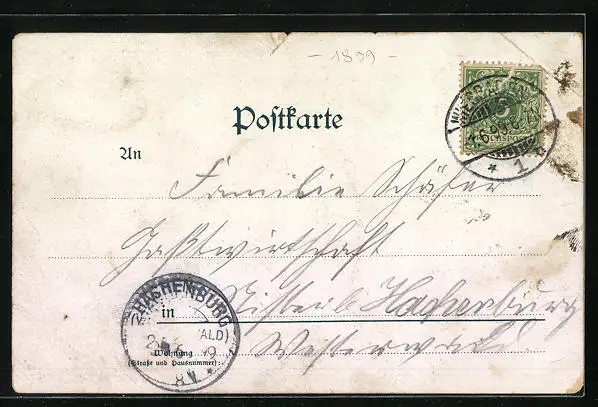 - 1899 -
Postkarte
An
Familie Schäfer
Gastwirtschaft
in Nister b/ Hachenburg
Westerwald
Wohnung
(Straße und Hausnummer):
HACHENBURG
ALD)
8 V.
5
1